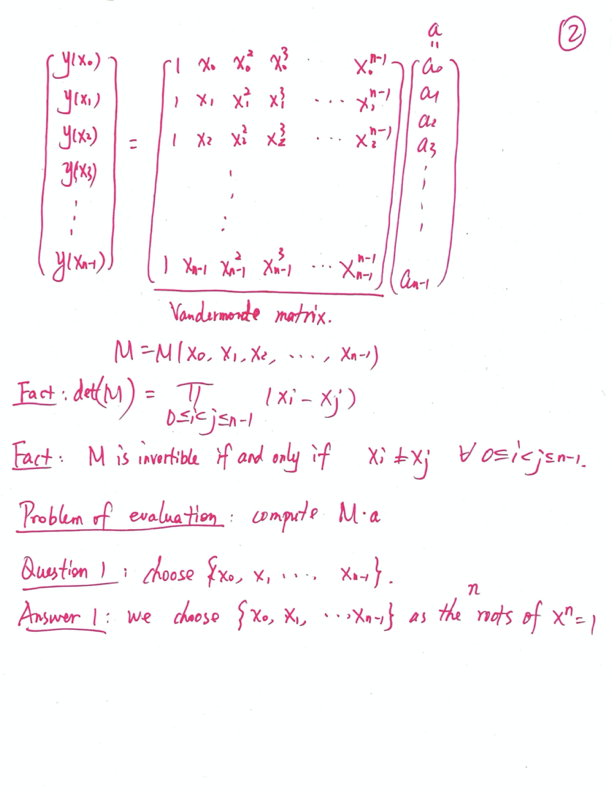 ②
a
"
[y(x₀)] [1 x₀ x₀² x₀³ ⋯ x₀ⁿ⁻¹] [a₀]
[y(x₁)] [1 x₁ x₁² x₁³ ⋯ x₁ⁿ⁻¹] [a₁]
[y(x₂)] = [1 x₂ x₂² x₂³ ⋯ x₂ⁿ⁻¹] [a₂]
[y(x₃)] ⋮ [a₃]
⋮ ⋮ ⋮
[y(xₙ₋₁)] [1 xₙ₋₁ xₙ₋₁² xₙ₋₁³ ⋯ xₙ₋₁ⁿ⁻¹] [aₙ₋₁]
Vandermonde matrix.
M = M(x₀, x₁, x₂, ⋯, xₙ₋₁)
Fact: det(M) = ∏ (xi − xj)
0≤i<j≤n-1
Fact: M is invertible if and only if xi ≠ xj ∀ 0≤i<j≤n-1.
Problem of evaluation: compute M·a
Question 1: choose {x₀, x₁ ⋯ xₙ₋₁}.
Answer 1: we choose {x₀, x₁, ⋯xₙ₋₁} as the n roots of xⁿ=1